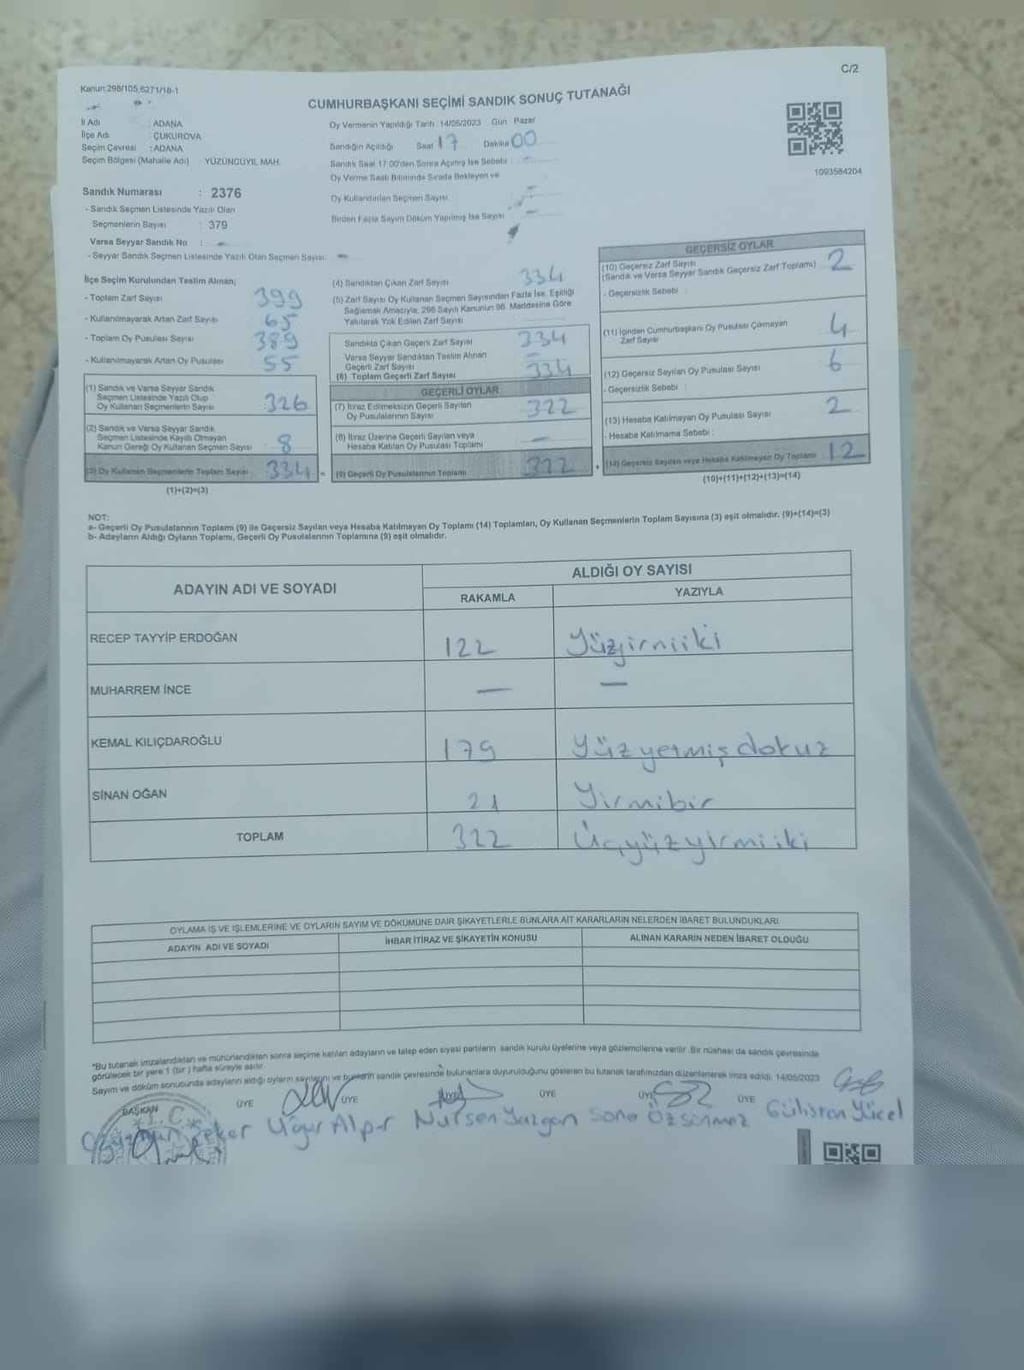 Kanun:298/105,6271/18-1
C/2
CUMHURBAŞKANI SEÇİMİ SANDIK SONUÇ TUTANAĞI
İl Adı : ADANA
İlçe Adı : ÇUKUROVA
Seçim Çevresi : ADANA
Seçim Bölgesi (Mahalle Adı) : YÜZÜNCÜYIL MAH.
Sandık Numarası : 2376
- Sandık Seçmen Listesinde Yazılı Olan
Seçmenlerin Sayısı : 379
Varsa Seyyar Sandık No : -
- Seyyar Sandık Seçmen Listesinde Yazılı Olan Seçmen Sayısı: -
Oy Vermenin Yapıldığı Tarih :14/05/2023 Gün Pazar
Sandığın Açıldığı Saat 17 Dakika 00
Sandık Saat 17:00'den Sonra Açılmış İse Sebebi : -
Oy Verme Saati Bitiminde Sırada Bekleyen ve
Oy Kullandırılan Seçmen Sayısı: -
Birden Fazla Sayım Döküm Yapılmış İse Sayısı -
1093584204
İlçe Seçim Kurulundan Teslim Alınan;
- Toplam Zarf Sayısı 399
- Kullanılmayarak Artan Zarf Sayısı 65
- Toplam Oy Pusulası Sayısı 389
- Kullanılmayarak Artan Oy Pusulası 55
(1) Sandık ve Varsa Seyyar Sandık
Seçmen Listesinde Yazılı Olup
Oy Kullanan Seçmenlerin Sayısı 326
(2) Sandık ve Varsa Seyyar Sandık
Seçmen Listesinde Kayıtlı Olmayan
Kanun Gereği Oy Kullanan Seçmen Sayısı 8
(3) Oy Kullanan Seçmenlerin Toplam Sayısı 334 =
(1)+(2)=(3)
(4) Sandıktan Çıkan Zarf Sayısı 334
(5) Zarf Sayısı Oy Kullanan Seçmen Sayısından Fazla İse, Eşitliği
Sağlamak Amacıyla, 298 Sayılı Kanunun 98. Maddesine Göre
Yakılarak Yok Edilen Zarf Sayısı
Sandıkta Çıkan Geçerli Zarf Sayısı 334
Varsa Seyyar Sandıktan Teslim Alınan
Geçerli Zarf Sayısı -
(6) Toplam Geçerli Zarf Sayısı 334
GEÇERLİ OYLAR
(7) İtiraz Edilmeksizin Geçerli Sayılan
Oy Pusulalarının Sayısı 322
(8) İtiraz Üzerine Geçerli Sayılan veya
Hesaba Katılan Oy Pusulası Toplamı -
(9) Geçerli Oy Pusulalarının Toplamı 322 +
GEÇERSİZ OYLAR
(10) Geçersiz Zarf Sayısı
(Sandık ve Varsa Seyyar Sandık Geçersiz Zarf Toplamı) 2
- Geçersizlik Sebebi :
(11) İçinden Cumhurbaşkanı Oy Pusulası Çıkmayan
Zarf Sayısı 4
(12) Geçersiz Sayılan Oy Pusulası Sayısı 6
- Geçersizlik Sebebi :
(13) Hesaba Katılmayan Oy Pusulası Sayısı 2
- Hesaba Katılmama Sebebi :
(14) Geçersiz Sayılan veya Hesaba Katılmayan Oy Toplamı 12
(10)+(11)+(12)+(13)=(14)
NOT:
a- Geçerli Oy Pusulalarının Toplamı (9) ile Geçersiz Sayılan veya Hesaba Katılmayan Oy Toplamı (14) Toplamları, Oy Kullanan Seçmenlerin Toplam Sayısına (3) eşit olmalıdır. (9)+(14)=(3)
b- Adayların Aldığı Oyların Toplamı, Geçerli Oy Pusulalarının Toplamına (9) eşit olmalıdır.
ADAYIN ADI VE SOYADI
ALDIĞI OY SAYISI
RAKAMLA YAZIYLA
RECEP TAYYİP ERDOĞAN 122 Yüzyirmiiki
MUHARREM İNCE - -
KEMAL KILIÇDAROĞLU 179 Yüzyetmişdokuz
SİNAN OĞAN 21 Yirmibir
TOPLAM 322 Üçyüzyirmiiki
OYLAMA İŞ VE İŞLEMLERİNE VE OYLARIN SAYIM VE DÖKÜMÜNE DAİR ŞİKAYETLERLE BUNLARA AİT KARARLARIN NELERDEN İBARET BULUNDUKLARI
ADAYIN ADI VE SOYADI İHBAR İTİRAZ VE ŞİKAYETİN KONUSU ALINAN KARARIN NEDEN İBARET OLDUĞU
*Bu tutanak imzalandıktan ve mühürlendikten sonra seçime katılan adayların ve talep eden siyasi partilerin sandık kurulu üyelerine veya gözlemcilerine verilir. Bir nüshası da sandık çevresinde
görülecek bir yere 1 (bir) hafta süreyle asılır.
Sayım ve döküm sonucunda adayların aldığı oyların sayılarını ve bunların sandık çevresinde bulunanlara duyurulduğunu gösteren bu tutanak tarafımızdan düzenlenerek imza edildi. 14/05/2023
BAŞKAN ÜYE ÜYE ÜYE ÜYE ÜYE
T.C.
Şeker Uğur Alper Nursen Yazgan Sona Özsönmez Gülistan Yücel